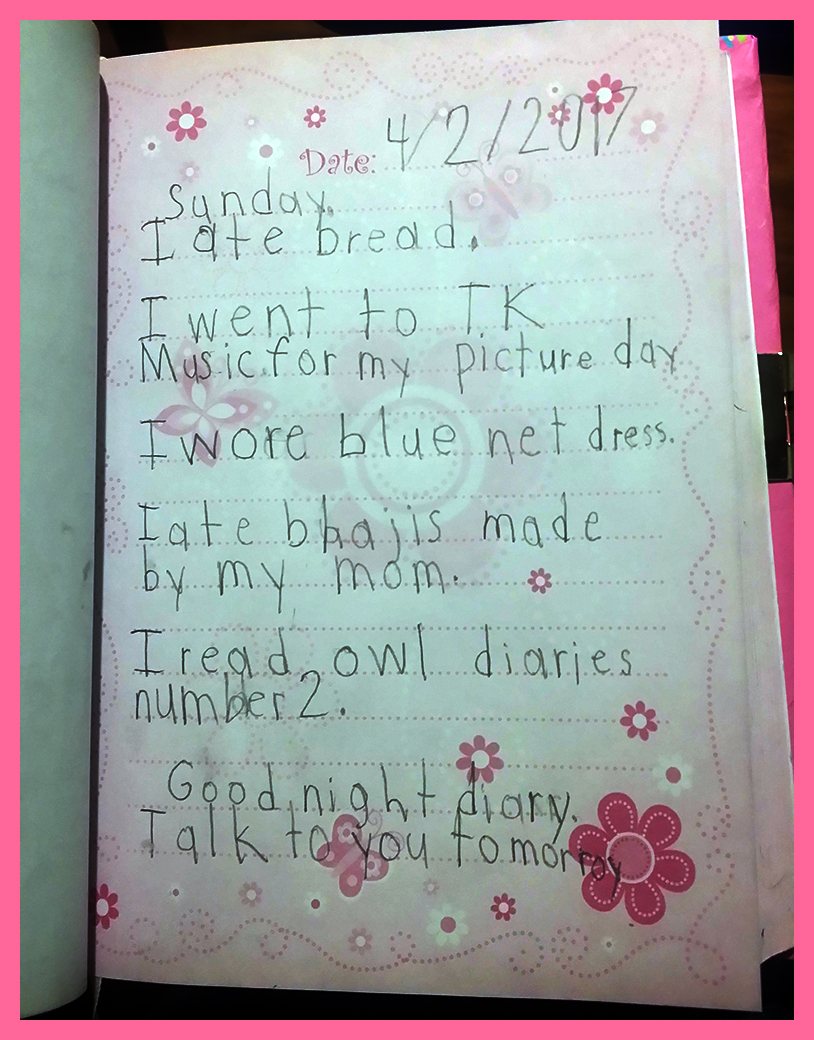 Date: 4/2/2017
Sunday.
I ate bread.
I went to TK
Music for my picture day
I wore blue net dress.
I ate bhajis made
by my mom.
I read owl diaries
number 2.
Good night diary.
Talk to you tomorroy